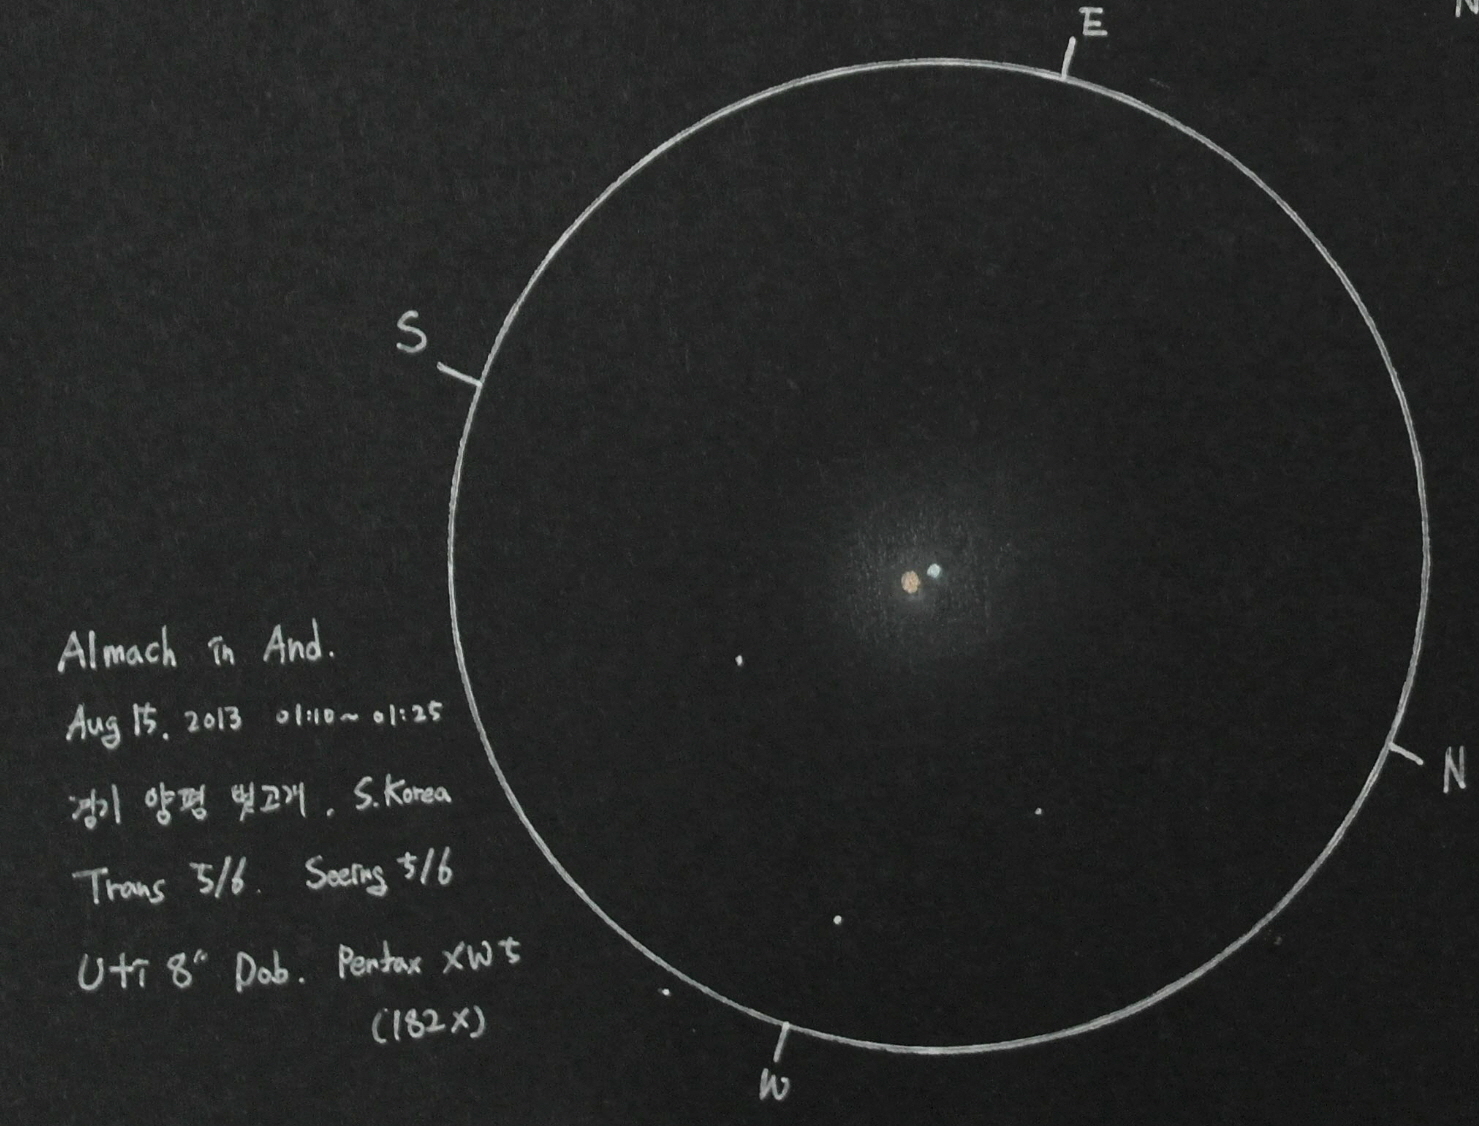 E
S
Almach in And.
Aug 15. 2013 01:10~01:25
경기 양평 벗고개, S.Korea
N
Trans 5/6. Seeing 5/6
Uti 8" Dob. Pentax XW5
(182X)
W